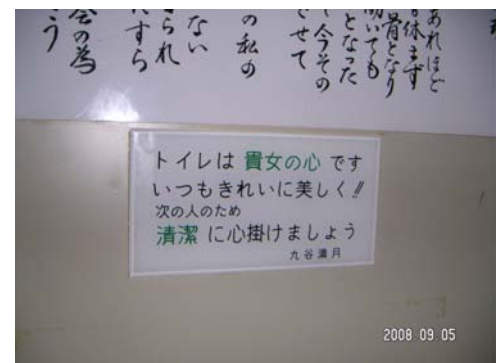 あれほど
も休まず
骨となり
働いても
となった
今その
させて
の私の
ない
られ
すら
会の為
う
トイレは 貴女の心 です
いつもきれいに美しく!!
次の人のため
清潔 に心掛けましょう
九谷満月
2008 09 05